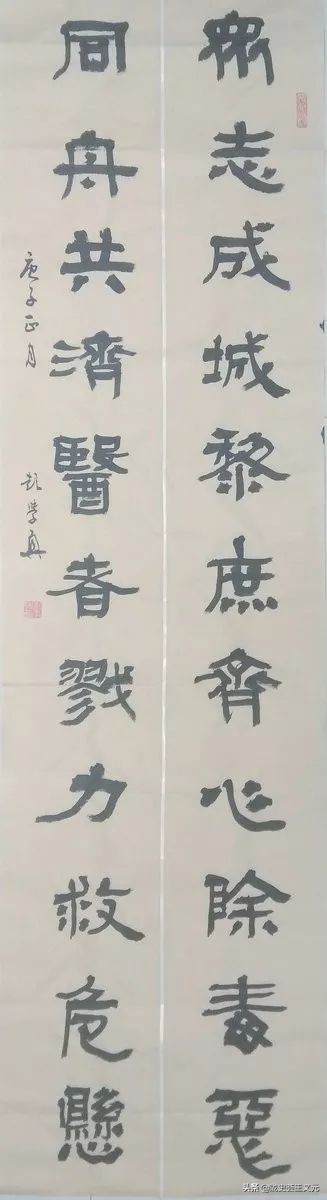 眾志成城黎庶齊心除毒惡
同舟共濟醫者戮力救危懸
庚子正月
彭學勇
头条@龙史班王文元